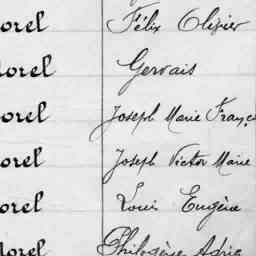 orel Félix Olivier
orel Gervais
orel Joseph Marie Franç
orel Joseph Victor Marie
orel Louis Eugène
Morel Philogène Adrie